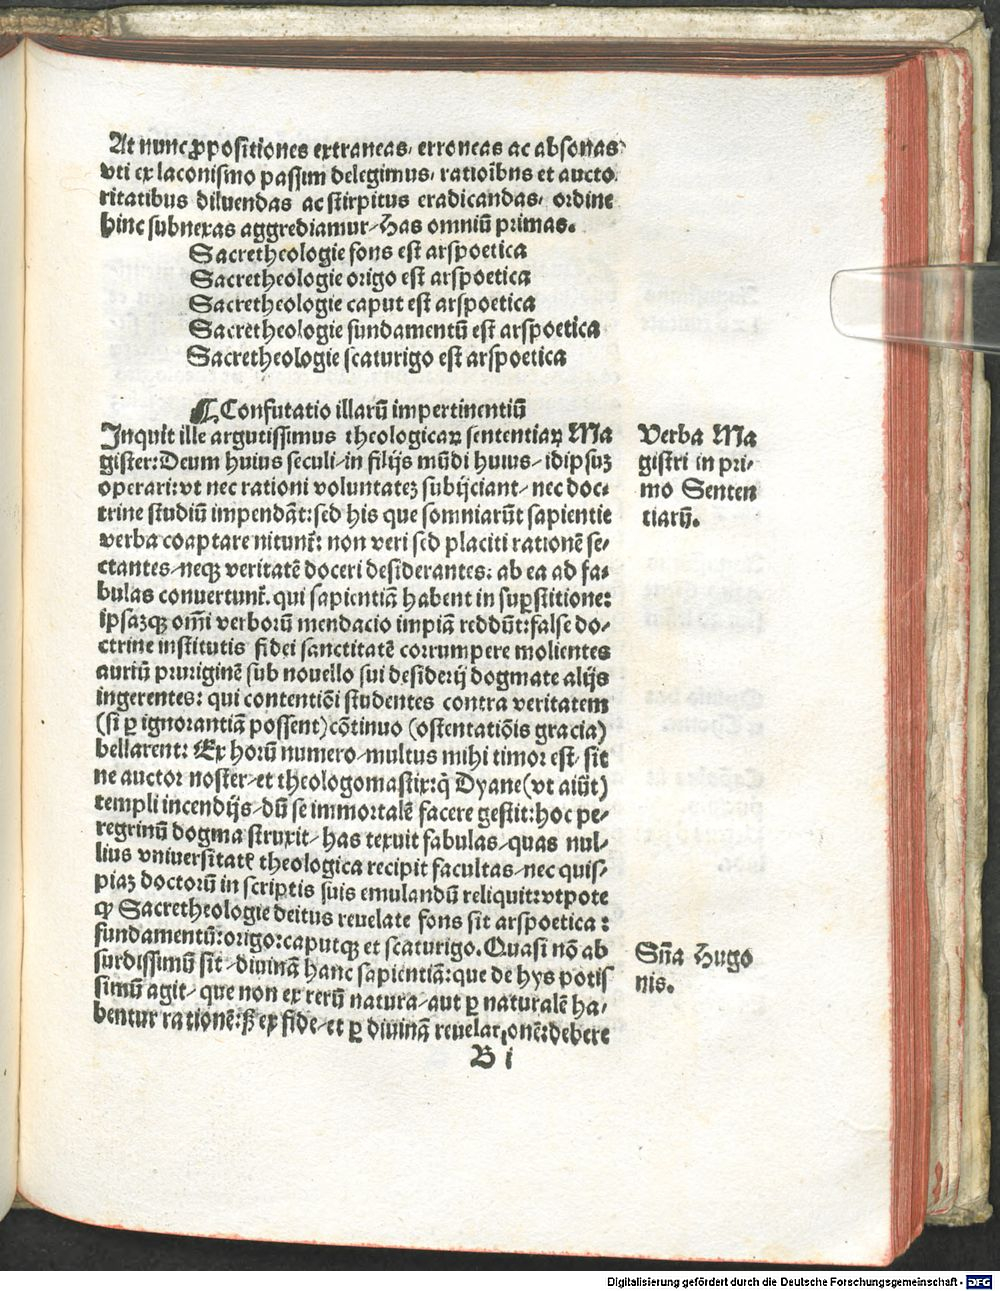 At nunc ꝓpositiones extraneas, erroneas ac absonas
vti ex laconismo passim delegimus, ratioībus et aucto
ritatibus diluendas ac stirpitus eradicandas, ordine
hinc subnexas aggrediamur, Has omniū primas.
Sacretheologie fons est arspoetica
Sacretheologie origo est arspoetica
Sacretheologie caput est arspoetica
Sacretheologie fundamentū est arspoetica
Sacretheologie scaturigo est arspoetica
¶ Confutatio illarū impertinentiū
Inquit ille argutissimus theologicaꝝ sententiaꝝ Ma
gister: Deum huius seculi, in filijs mūdi huius, idipsuꝫ
operari: vt nec rationi voluntateꝫ subijciant, nec doc-
trine studiū impendāt: sed his que somniarūt sapientie
verba coaptare nitunt̄: non veri sed placiti rationē se-
ctantes, neqꝫ veritatē doceri desiderantes: ab ea ad fa-
bulas convertunt̄. qui sapientiā habent in suꝑstitione:
ipsaꝫqꝫ om̄i verborū mendacio impiā reddūt: false do-
ctrine institutis fidei sanctitatē corrumpere molientes
auriū pruriginē sub nouello sui desiderij dogmate alijs
ingerentes: qui contentiōi studentes contra veritatem
(si ꝑ ignorantiā possent) cōtinuo (ostentatiōis gracia)
bellarent: Ex horū numero, multus mihi timor est, sit
ne auctor noster, et theologomastix: q̄ Dyane (vt aiūt)
templi incendijs, dū se immortalē facere gestit: hoc pe-
regrinū dogma struxit, has texuit fabulas, quas nul-
lius vniuersitatē theologica recipit facultas, nec quis-
piaꝫ doctorū in scriptis suis emulandū reliquit: vtpote
ꝙ Sacretheologie deitus reuelate fons sit arspoetica:
fundamentū: origo: caputqꝫ et scaturigo. Quasi nō ab
surdissimū sit, divinā hanc sapientiā: que de hys potis
simū agit, que non ex rerū natura, aut ꝑ naturalē ha-
bentur rationē: sꝫ ex fide, et ꝑ diuinā reuelationē: debere
B i
Verba Ma
gistri in pri-
mo Senten
tiarū.
Sn̄a Hugo
nis.
Digitalisierung gefördert durch die Deutsche Forschungsgemeinschaft - DFG